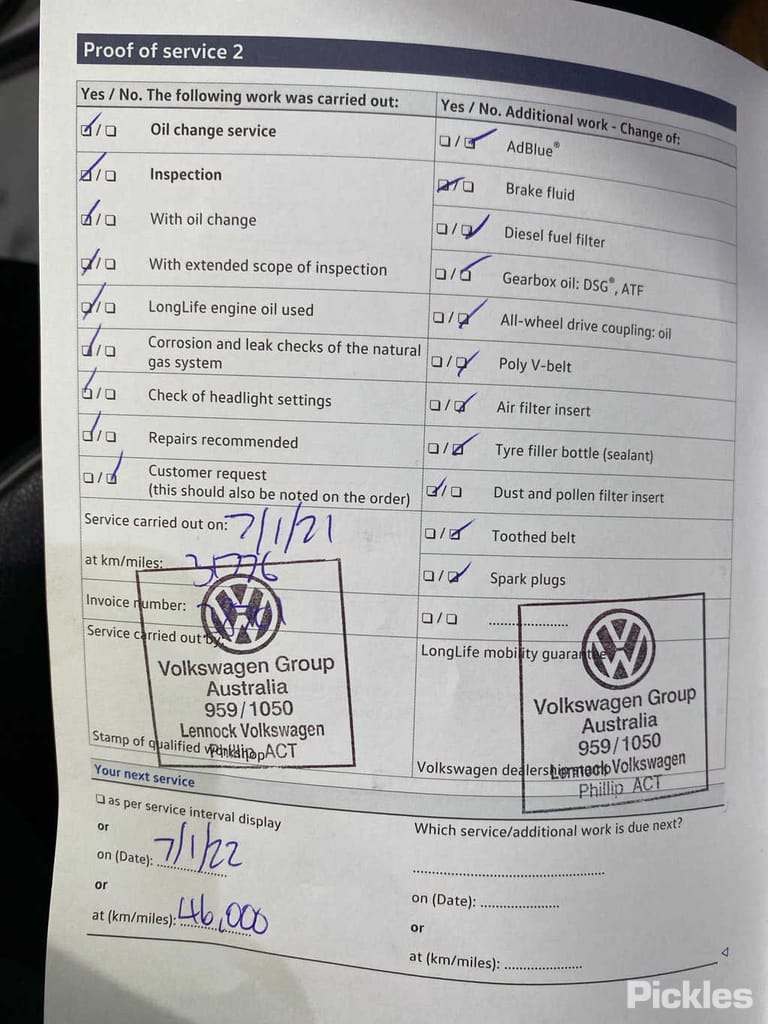 Proof of service 2
Yes / No. The following work was carried out:
☑/☐ Oil change service
☑/☐ Inspection
☑/☐ With oil change
☑/☐ With extended scope of inspection
☑/☐ LongLife engine oil used
☑/☐ Corrosion and leak checks of the natural
gas system
☑/☐ Check of headlight settings
☑/☐ Repairs recommended
☐/☑ Customer request
(this should also be noted on the order)
Service carried out on: 7/1/21
at km/miles: 31776
Invoice number:
Service carried out by:
Volkswagen Group
Australia
959/1050
Lennock Volkswagen
Phillip ACT
Stamp of qualified workshop
Yes / No. Additional work - Change of:
☐/☑ AdBlue®
☑/☐ Brake fluid
☐/☑ Diesel fuel filter
☐/☑ Gearbox oil: DSG®, ATF
☐/☑ All-wheel drive coupling: oil
☐/☑ Poly V-belt
☐/☑ Air filter insert
☐/☑ Tyre filler bottle (sealant)
☑/☐ Dust and pollen filter insert
☐/☑ Toothed belt
☐/☑ Spark plugs
☐/☐ ....................
LongLife mobility guarantee
Volkswagen Group
Australia
959/1050
Lennock Volkswagen
Phillip ACT
Volkswagen dealership stamp
Your next service
☐ as per service interval display
or
on (Date): 7/1/22
or
at (km/miles): 46,000
Which service/additional work is due next?
..................................................
on (Date): ....................
or
at (km/miles): ....................
Pickles